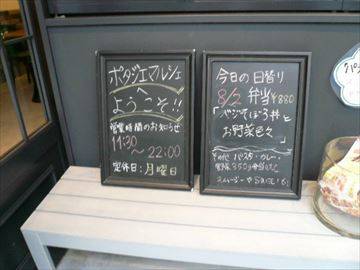 ポタジエマルシェ
へ
ようこそ!!
営業時間のお知らせ
11:30
〜22:00
定休日:月曜日
今日の日替り
8/2 弁当 ¥880
「ベジそぼろ丼と
お野菜色々」
その他 パスタ・カレー・